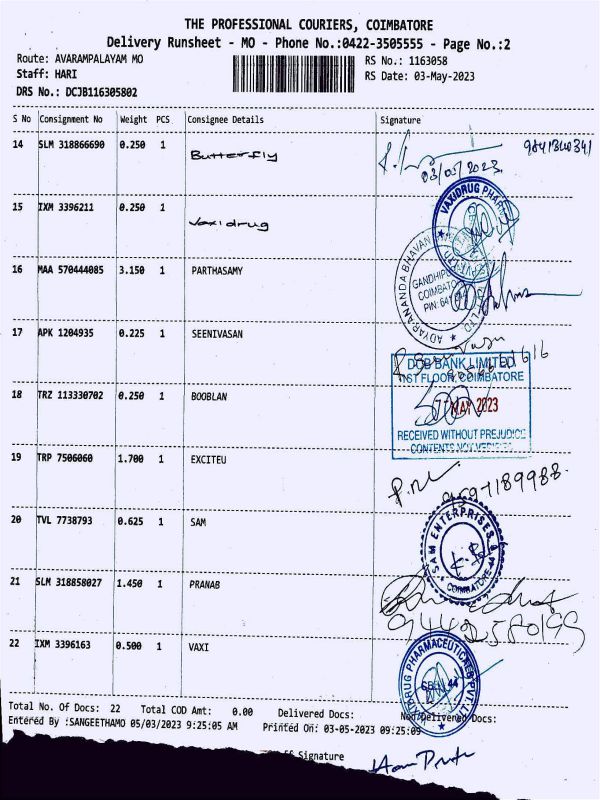 THE PROFESSIONAL COURIERS, COIMBATORE
Delivery Runsheet - MO - Phone No.:0422-3505555 - Page No.:2
Route: AVARAMPALAYAM MO
RS No.: 1163058
Staff: HARI
RS Date: 03-May-2023
DRS No.: DCJB116305802
S No Consignment No Weight PCS Consignee Details Signature
14 SLM 318866690 0.250 1 Butterfly
03/05/2023
15 IXM 3396211 0.250 1 Vaxidrug
VAXIDRUG PHARM
ADYAR ANANDA BHAVAN
GANDHIPU
COIMBATO
PIN: 641
16 MAA 570444085 3.150 1 PARTHASAMY
17 APK 1204935 0.225 1 SEENIVASAN
DCB BANK LIMITED
1ST FLOOR, COIMBATORE
18 TRZ 113330702 0.250 1 BOOBLAN
MAY 2023
RECEIVED WITHOUT PREJUDICE
CONTENTS NOT VERIFIED
19 TRP 7506060 1.700 1 EXCITEU
20 TVL 7738793 0.625 1 SAM
SAM ENTERPRISES
COIMBATORE
21 SLM 318858027 1.450 1 PRANAB
22 IXM 3396163 0.500 1 VAXI
VAXIDRUG PHARMACEUTICALS PVT. LTD
Total No. Of Docs: 22 Total COD Amt: 0.00 Delivered Docs: Non Delivered Docs:
Entered By :SANGEETHAMO 05/03/2023 9:25:05 AM Printed On: 03-05-2023 09:25:09
Signature